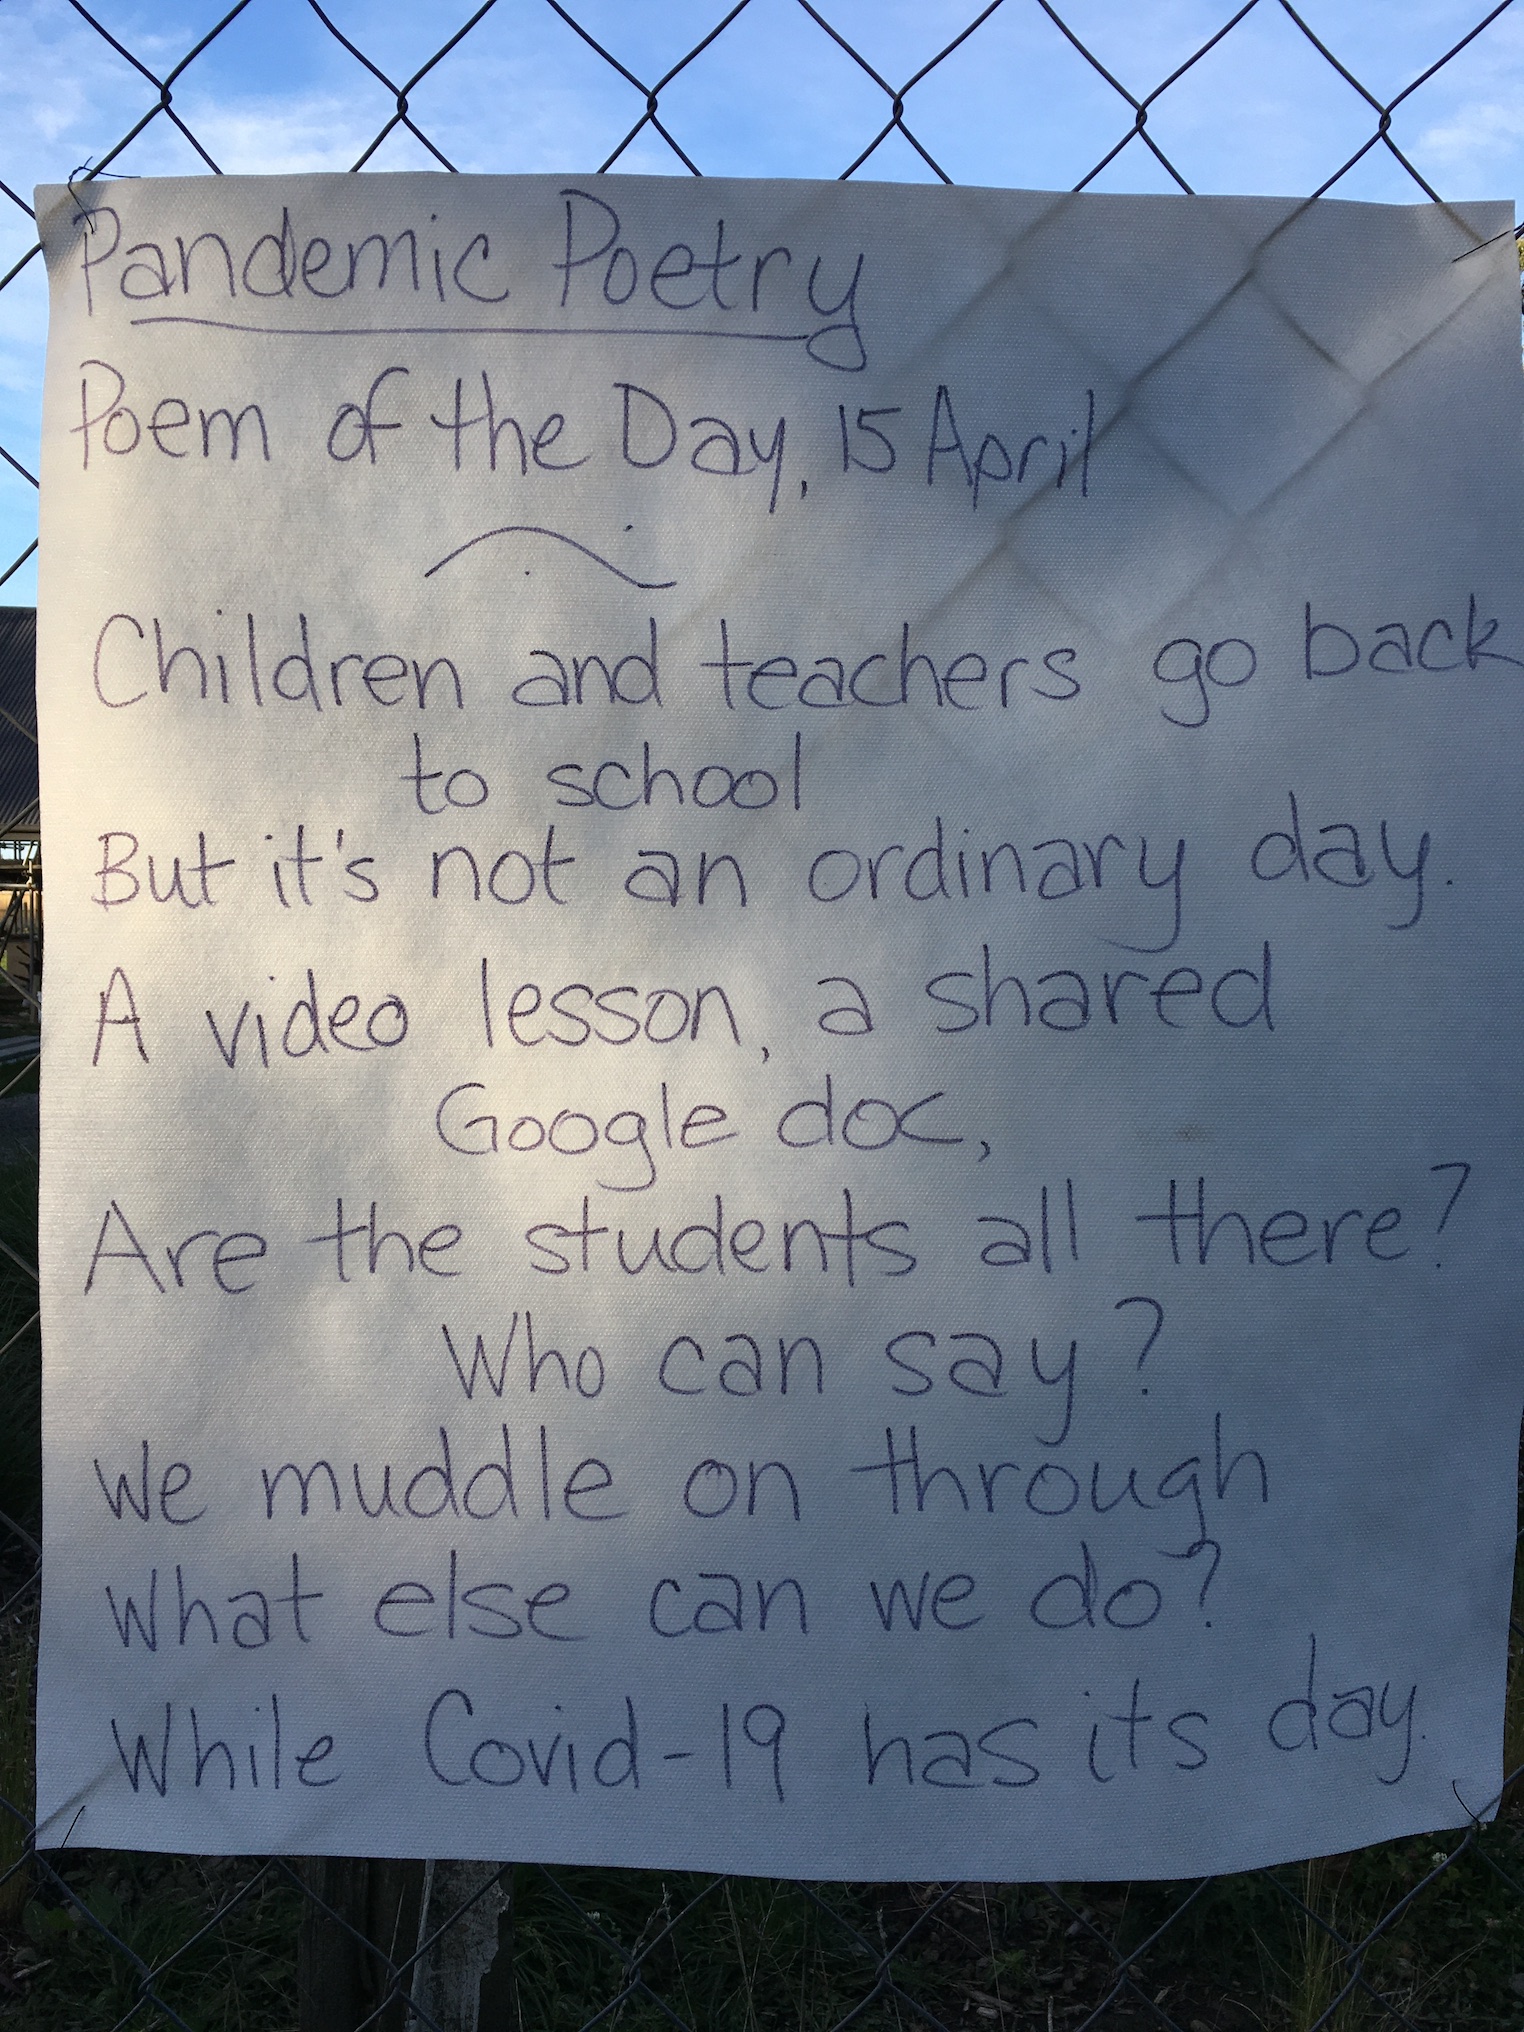 Pandemic Poetry
Poem of the Day, 15 April
Children and teachers go back
to school
But it's not an ordinary day.
A video lesson, a shared
Google doc,
Are the students all there?
Who can say?
We muddle on through
What else can we do?
While Covid-19 has its day.